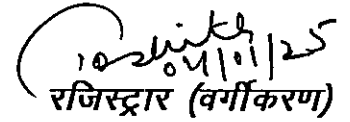 04/01/25
रजिस्ट्रार (वर्गीकरण)